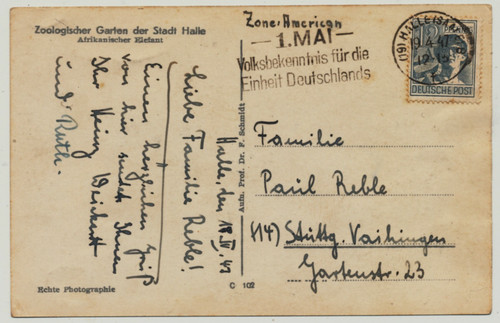 Zoologischer Garten der Stadt Halle
Afrikanischer Elefant
Halle, den 18. IV. 47
Liebe Familie Reble!
Einen herzlichen Gruß
von hier sendet Ihnen
Ihr Heinz Weickert
und Ruth.
Echte Photographie
Aufn. Prof. Dr. F. Schmidt
C 102
Zone: American
1. MAI
Volksbekenntnis für die
Einheit Deutschlands
HALLE (SAALE)
(19)
DEUTSCHE POST
Familie
Paul Reble
(14) Stuttg. Vaihingen
Gartenstr. 23